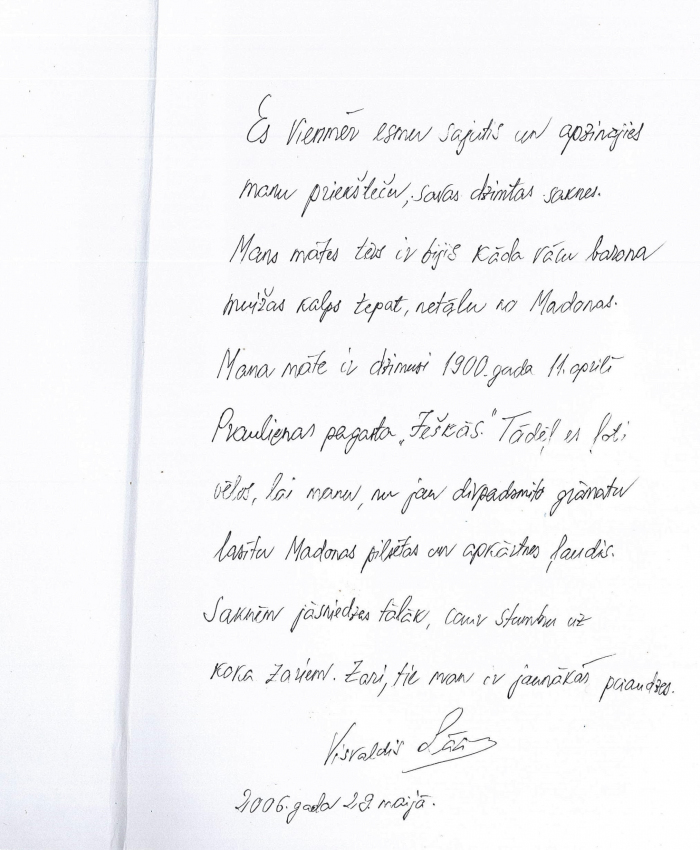 Es vienmēr esmu sajutis un apzinājies
manu priekšteču, savas dzimtas saknes.
Mans mātes tēvs ir bijis kāda vācu barona
muižas kalps tepat, netālu no Madonas.
Mana māte ir dzimusi 1900. gada 11. aprīlī
Praulienas pagasta „Ješkās." Tādēļ es ļoti
vēlos, lai manu, nu jau divpadsmito grāmatu
lasītu Madonas pilsētas un apkārtnes ļaudis.
Saknēm jāsniedzas tālāk, caur stumbru uz
koka zariem. Zari, tie man ir jaunākās paaudzes.
Visvaldis Lāc
2006. gada 29. maijā.